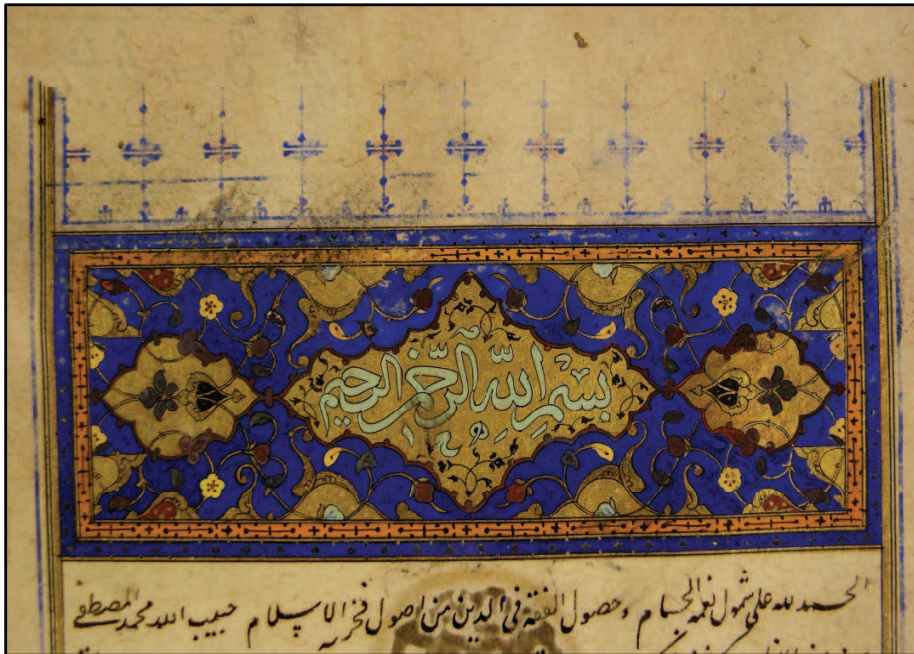 بسم الله الرحمن الرحيم
الحمد لله على شمول نعمه الجسام وحصول الفقه في الدين من اصول فخر الاسلام حبيب الله محمد المصطفى